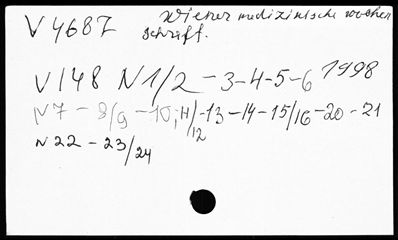 V 4687 Wiener medizinische wochen
schrift.
V 148 N 1/2 - 3-4-5-6 1998
N 7 - 8/9 - 10; 11/12 - 13 - 14 - 15/16 - 20 - 21
N 22 - 23/24